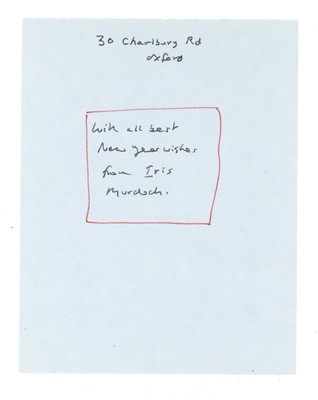 30 Charlbury Rd
Oxford
With all best
New Year wishes
from Iris
Murdoch.